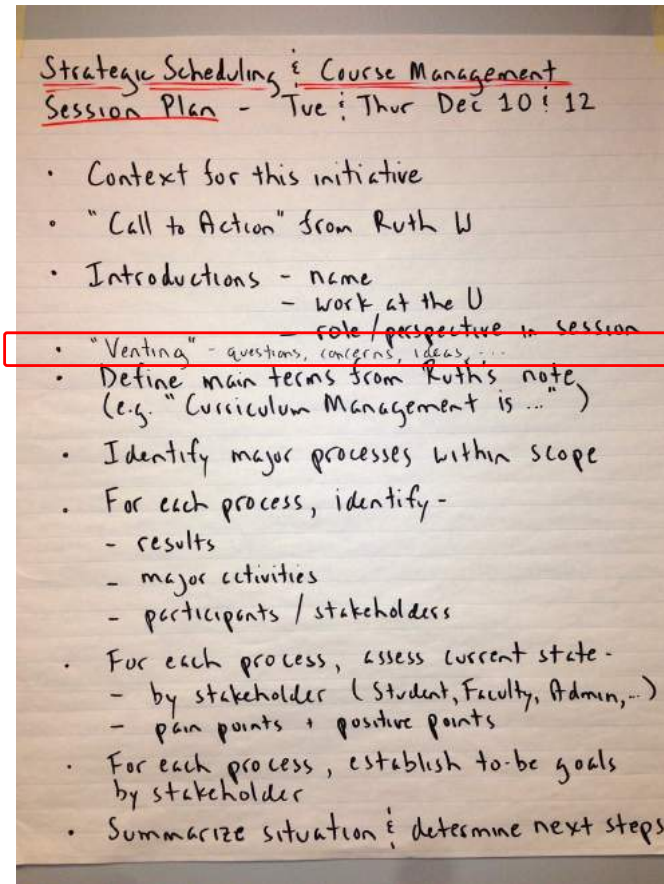 Strategic Scheduling & Course Management
Session Plan - Tue & Thur Dec 10 & 12
• Context for this initiative
• "Call to Action" from Ruth W
• Introductions - name
- work at the U
- role/perspective in session
• "Venting" - questions, concerns, ideas, ...
• Define main terms from Ruth's note
(e.g. "Curriculum Management is ..." )
• Identify major processes within scope
• For each process, identify -
- results
- major activities
- participants / stakeholders
• For each process, assess current state -
- by stakeholder (Student, Faculty, Admin, ...)
- pain points + positive points
• For each process, establish to-be goals
by stakeholder
• Summarize situation & determine next steps